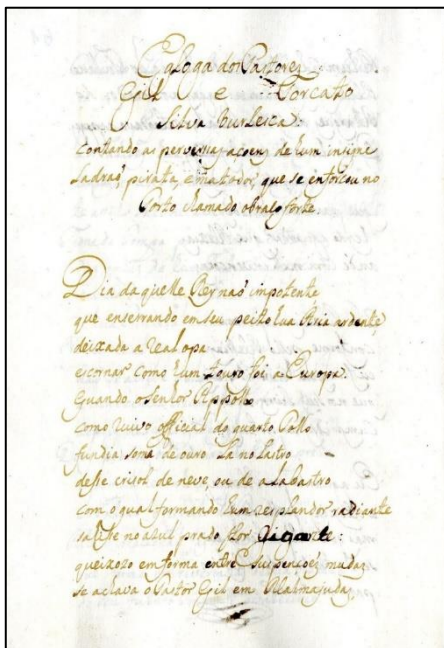 Egloga dos Pastores
Gil e Torcato
Silva Burlesca.
Contando as perversas açoens de hum insigne
Ladraõ, pirata, e matador, que se enforcou no
Porto chamado o braço forte.
Dia daquelle Reynaõ impotente
que enserrando em seu peito hua ardente,
deixada a Real opa
escornar como hum touro foi a Europa.
Quando o senhor Appollo
como ruivo official do quarto Pollo
fundia soma de ouro la no lastro
desse crisol de neve, ou de alabastro
com o qual formando hum resplandor radiante
no azul prado flor Gigante:
queixozo em forma entre suspençoẽz mudas
se achava o Pastor Gil em